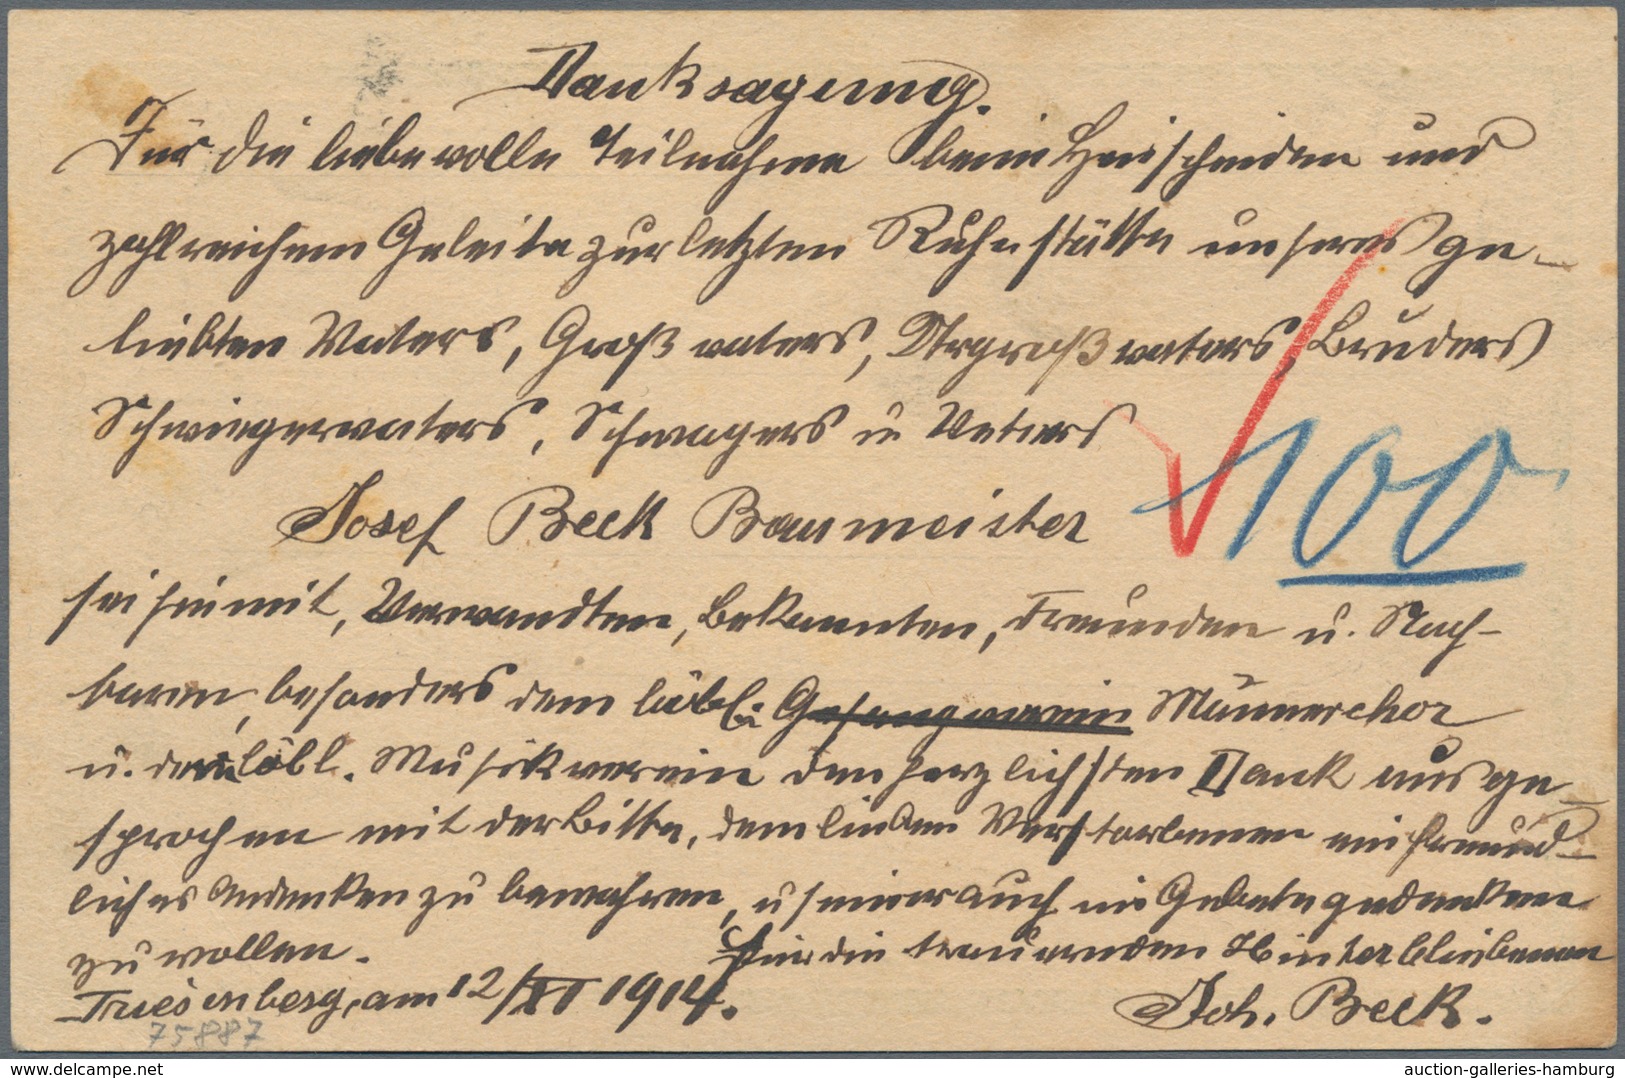 Danksagung.
Für die liebevolle Teilnahme beim Hinscheiden und
zahlreichem Geleite zur letzten Ruhestätte unseres ge-
liebten Vaters, Großvaters, Urgroßvaters, Bruders
Schwiegervaters, Schwagers u Vetters
100
Josef Beck Baumeister
sei hiemit, Verwandten, Bekannten, Freunden u. Nach-
baren, besonders dem löbl. Gesangverein Männerchor
u. dem löbl. Musikverein den herzlichsten Dank ausge
sprochen mit der Bitte, dem lieben Verstorbenen ein freund-
liches Andenken zu bewahren, u seiner auch im Gebete gedenken
zu wollen. Für die trauernden Hinterbliebenen
Triesenberg, am 12/XI 1914. Joh. Beck.
75887
www.delcampe.net
auction-galleries-hamburg